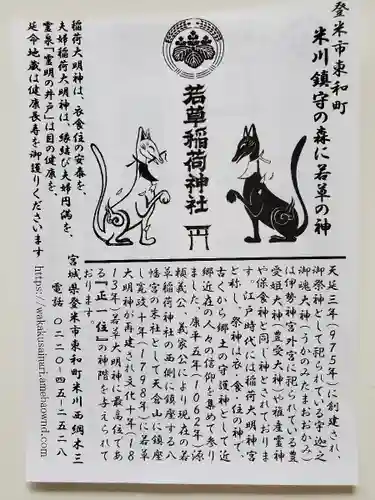 登米市東和町
米川鎮守の森に若草の神
若草稲荷神社
天延三年(975年)に創建され、
御祭神として祀られている宇迦之
御魂大神(うかのみたまおおかみ)
は伊勢神宮外宮に祀られている豊
受姫大神(豊受大神)や稚産霊神
や保食神と同じ神とされておりま
す。江戸時代には稲荷大明神宮
と称し、祭神は衣・食・住の神で、
古くから郷土の守護神として近
郷近在の人々の信仰を集めて参り
ました。康平五年(1062年)源
頼義公・義家公により現在の若
草稲荷神社の西側に鎮座する八
幡宮の末社として天倉山に鎮座
し寛政十年(1798年)に若草
大明神が再建され文化十年(18
13年)若草大明神に最高位であ
る『正一位』の神階を与えられて
おります。
稲荷大明神は、衣食住の安泰を、
夫婦稲荷大明神は、縁結び夫婦円満を、
霊泉「霊明の井戸」は目の健康を、
延命地蔵は健康長寿を御護りくださいます
宮城県登米市東和町米川西綱木三
電話 〇二二〇-四五-二五二八
https://wakakusainari.amebaownd.com